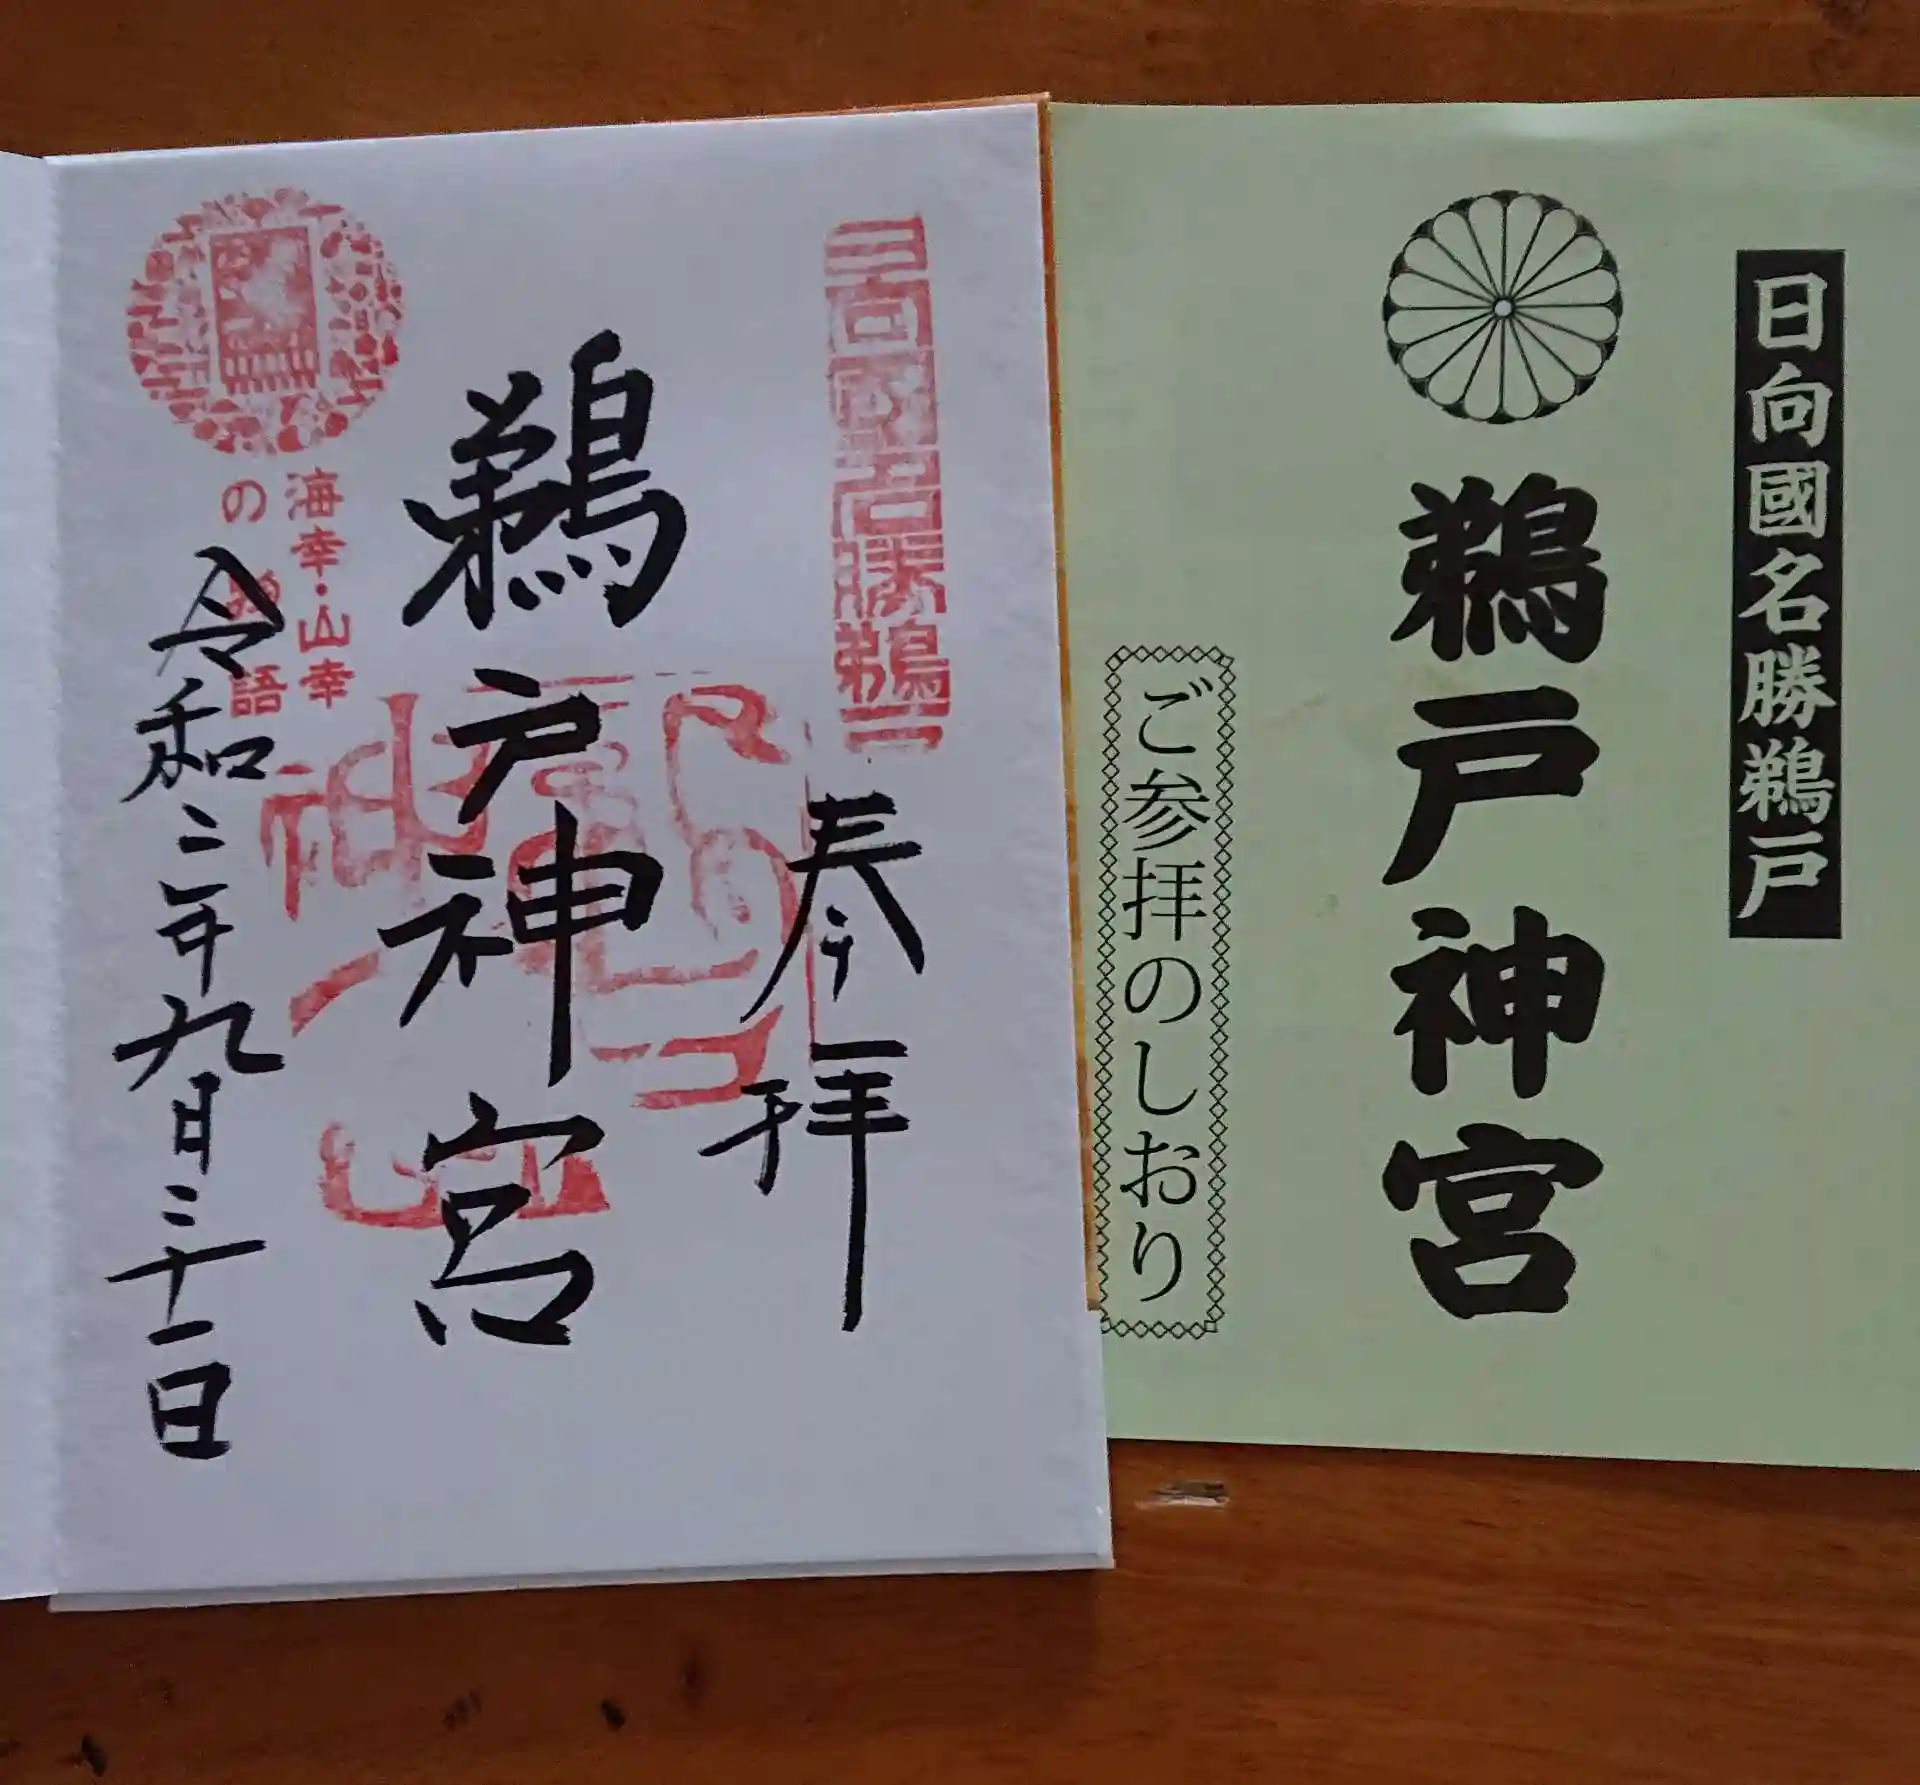 日向國名勝鵜戸
鵜戸神宮
ご参拝のしおり
日向國名勝鵜戸
奉拝
鵜戸神宮
海幸・山幸
の物語
令和二年九月二十一日